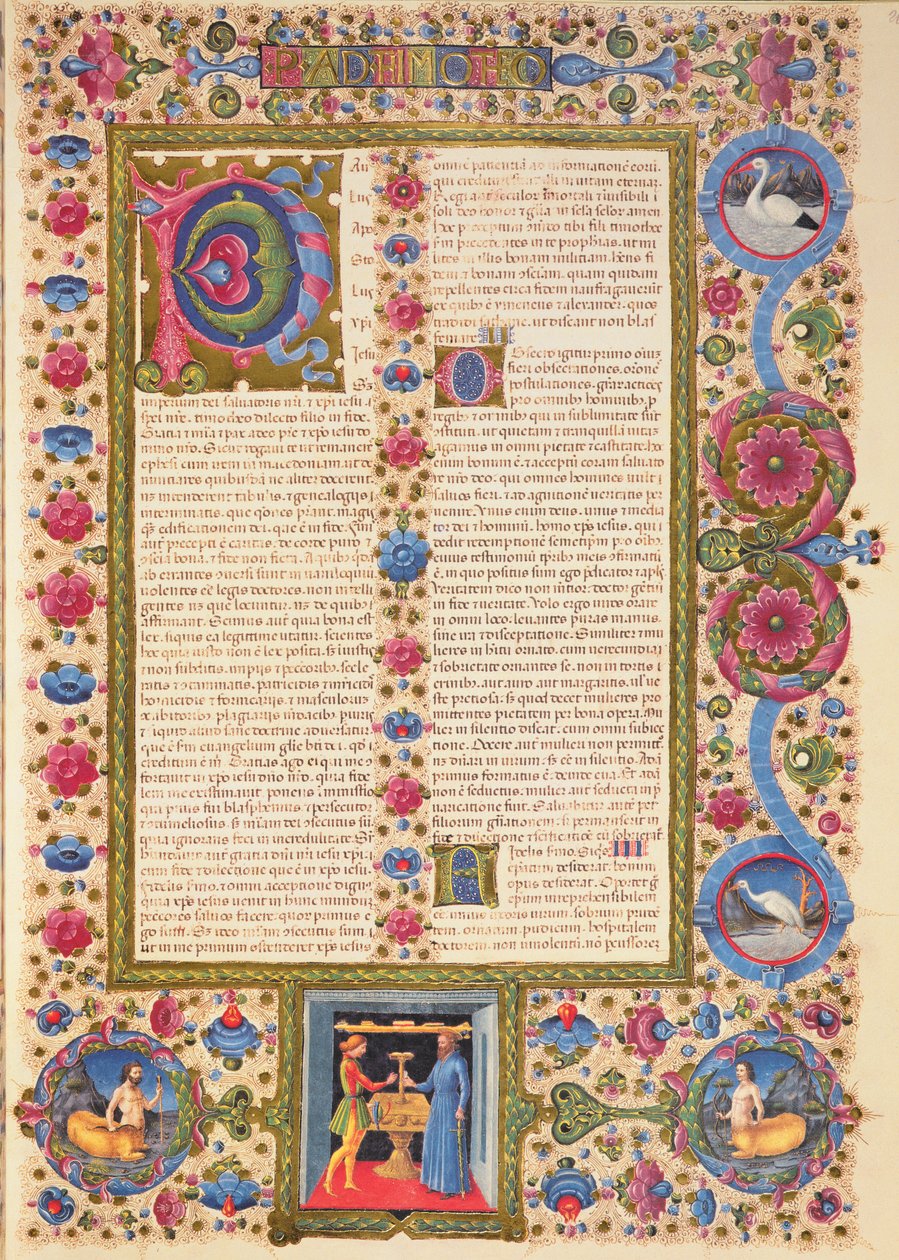 P. AD THIMOTEO
P
Au
Lus
Apo
Sto
Lus
xpi
Iesu
imperium dei salvatoris nri. & xpi iesu
spei nre. timotheo dilecto filio in fide.
Gratia & mia & pax a deo pre & xpo iesu do
mino nro. Sicut rogavi te ut remaneres
ephesi cum irem in macedoniam. ut de
nuntiares quibusda ne aliter docerent.
intenderent fabulis. & genealogiis
interminatis. que qones prant. magis
edificationem dei. que e in fide. Finis
aut precepti e caritas. de corde puro
& oscia bona. & fide non ficta. A quibus
ab errantes oversi sunt in vaniloquium
volentes ee legis doctores. non intelli
gentes que locuntur. de quibus
affirmant. Scimus aut qua bona est
lex. siquis ea legittime utatur. scientes
hoc quia iusto non e lex posita. iniustis
& non subditis. impiis & peccoribus. scele
ratis & otaminatis. patricidis & mricidis
homicidis & fornicariis. & masculorum
oabitoribus. plagiariis mdacibus. piuris
& siquid aliud sane doctrine adversatur
que e sm evangelium glie bti dei. qd
creditum e m. Gratias ago ei qui me
fortavit in xpo iesu dno nro. quia fide
lem me existimavit. ponens in ministio
qui prius fui blasphemus & persecutor
& otumeliosus. miam dei osecutus sum
quia ignorans feci in incredulitate. Sup
habundavit aut gratia dni nri iesu xpi.
cum fide & dilectione que e in xpo iesu
fidelis smo. & omni acceptione dignus
quia xps iesus venit in hunc mundum
peccores salvos facere. quorum primus e
go sum. ideo miam osecutus sum
ut in me primum ostenderet xps iesus
omne patientia ad informatione eorum
qui credituri sunt illi in vitam eternam.
Regi aut seclorum immortali & invisibili
soli deo honor & glia in secla seclorum amen
hoc pceptum omdo tibi fili timothee
sm precedentes in te prophias. ut mi
lites in illis bonam militiam. hens fi
dem & bonam osciam. quam quidam
repellentes circa fidem naufragaverunt
ex quibus e ymeneus & alexander. quos
tradidi sathane. ut discant non blas
femare. II
O Bsecro igitur primo oium
fieri obsecrationes. orones
postulationes. grarum actiones
pro omnibus hominibus. p
regibus & omnibus qui in sublimitate sunt
ostituti. ut quietam & tranquillam vitam
agamus in omni pietate & castitate. hoc
enim bonum e. & acceptum coram salvato
re nro deo. qui omnes homines vult
salvos fieri. & ad agnitionem veritatis per
venire. Unus enim deus. unus & media
tor dei & hominum. homo xps iesus. qui
dedit redemptionem semetipsum pro oibus
cuius testimonium tpribus meis ofirmatum
e. in quo positus sum ego predicator & aplus
Veritatem dico non mtior. doctor gentium
in fide & veritate. Volo ergo viros orare
in omni loco. levantes puras manus.
sine ira & disceptatione. Similiter & mu
lieres in habitu ornato. cum verecundia
& sobrietate ornantes se. non in tortis
crinibus. aut auro. aut margaritis. vel ve
ste pretiosa. quod decet mulieres pro
mittentes pietatem per bona opera. Mu
lier in silentio discat. cum omni subiec
tione. Docere aut mulieri non permitto
dniari in virum. ee in silentio. Ada
primus formatus e. deinde eva. Et adam
non e seductus. mulier aut seducta in p
varicatione fuit. Salvabitur aute per
filiorum gnationem. si permanserit in
fide & dilectione & scificatioe cu sobrietate
F Idelis smo. Siquis III
epatum desiderat. bonum
opus desiderat. Oportet g
epum inreprehensibilem
ee. unius uxoris virum. sobrium pruden
tem. ornatum. pudicum. hospitalem
doctorem. non vinolentum. no percussorem